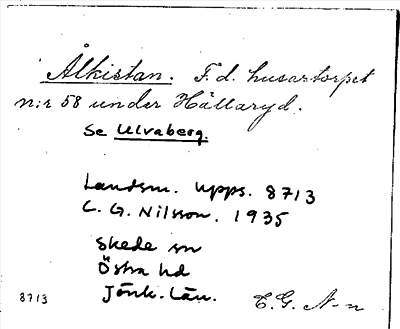 Ålkistan. F.d. husartorpet
n:r 58 under Hällaryd.
Se Ulvaberg.
Landsm. Upps. 8713
C. G. Nilsson. 1935
Skede sn
Östra hd
Jönk. län.
8713 E.G. N-n